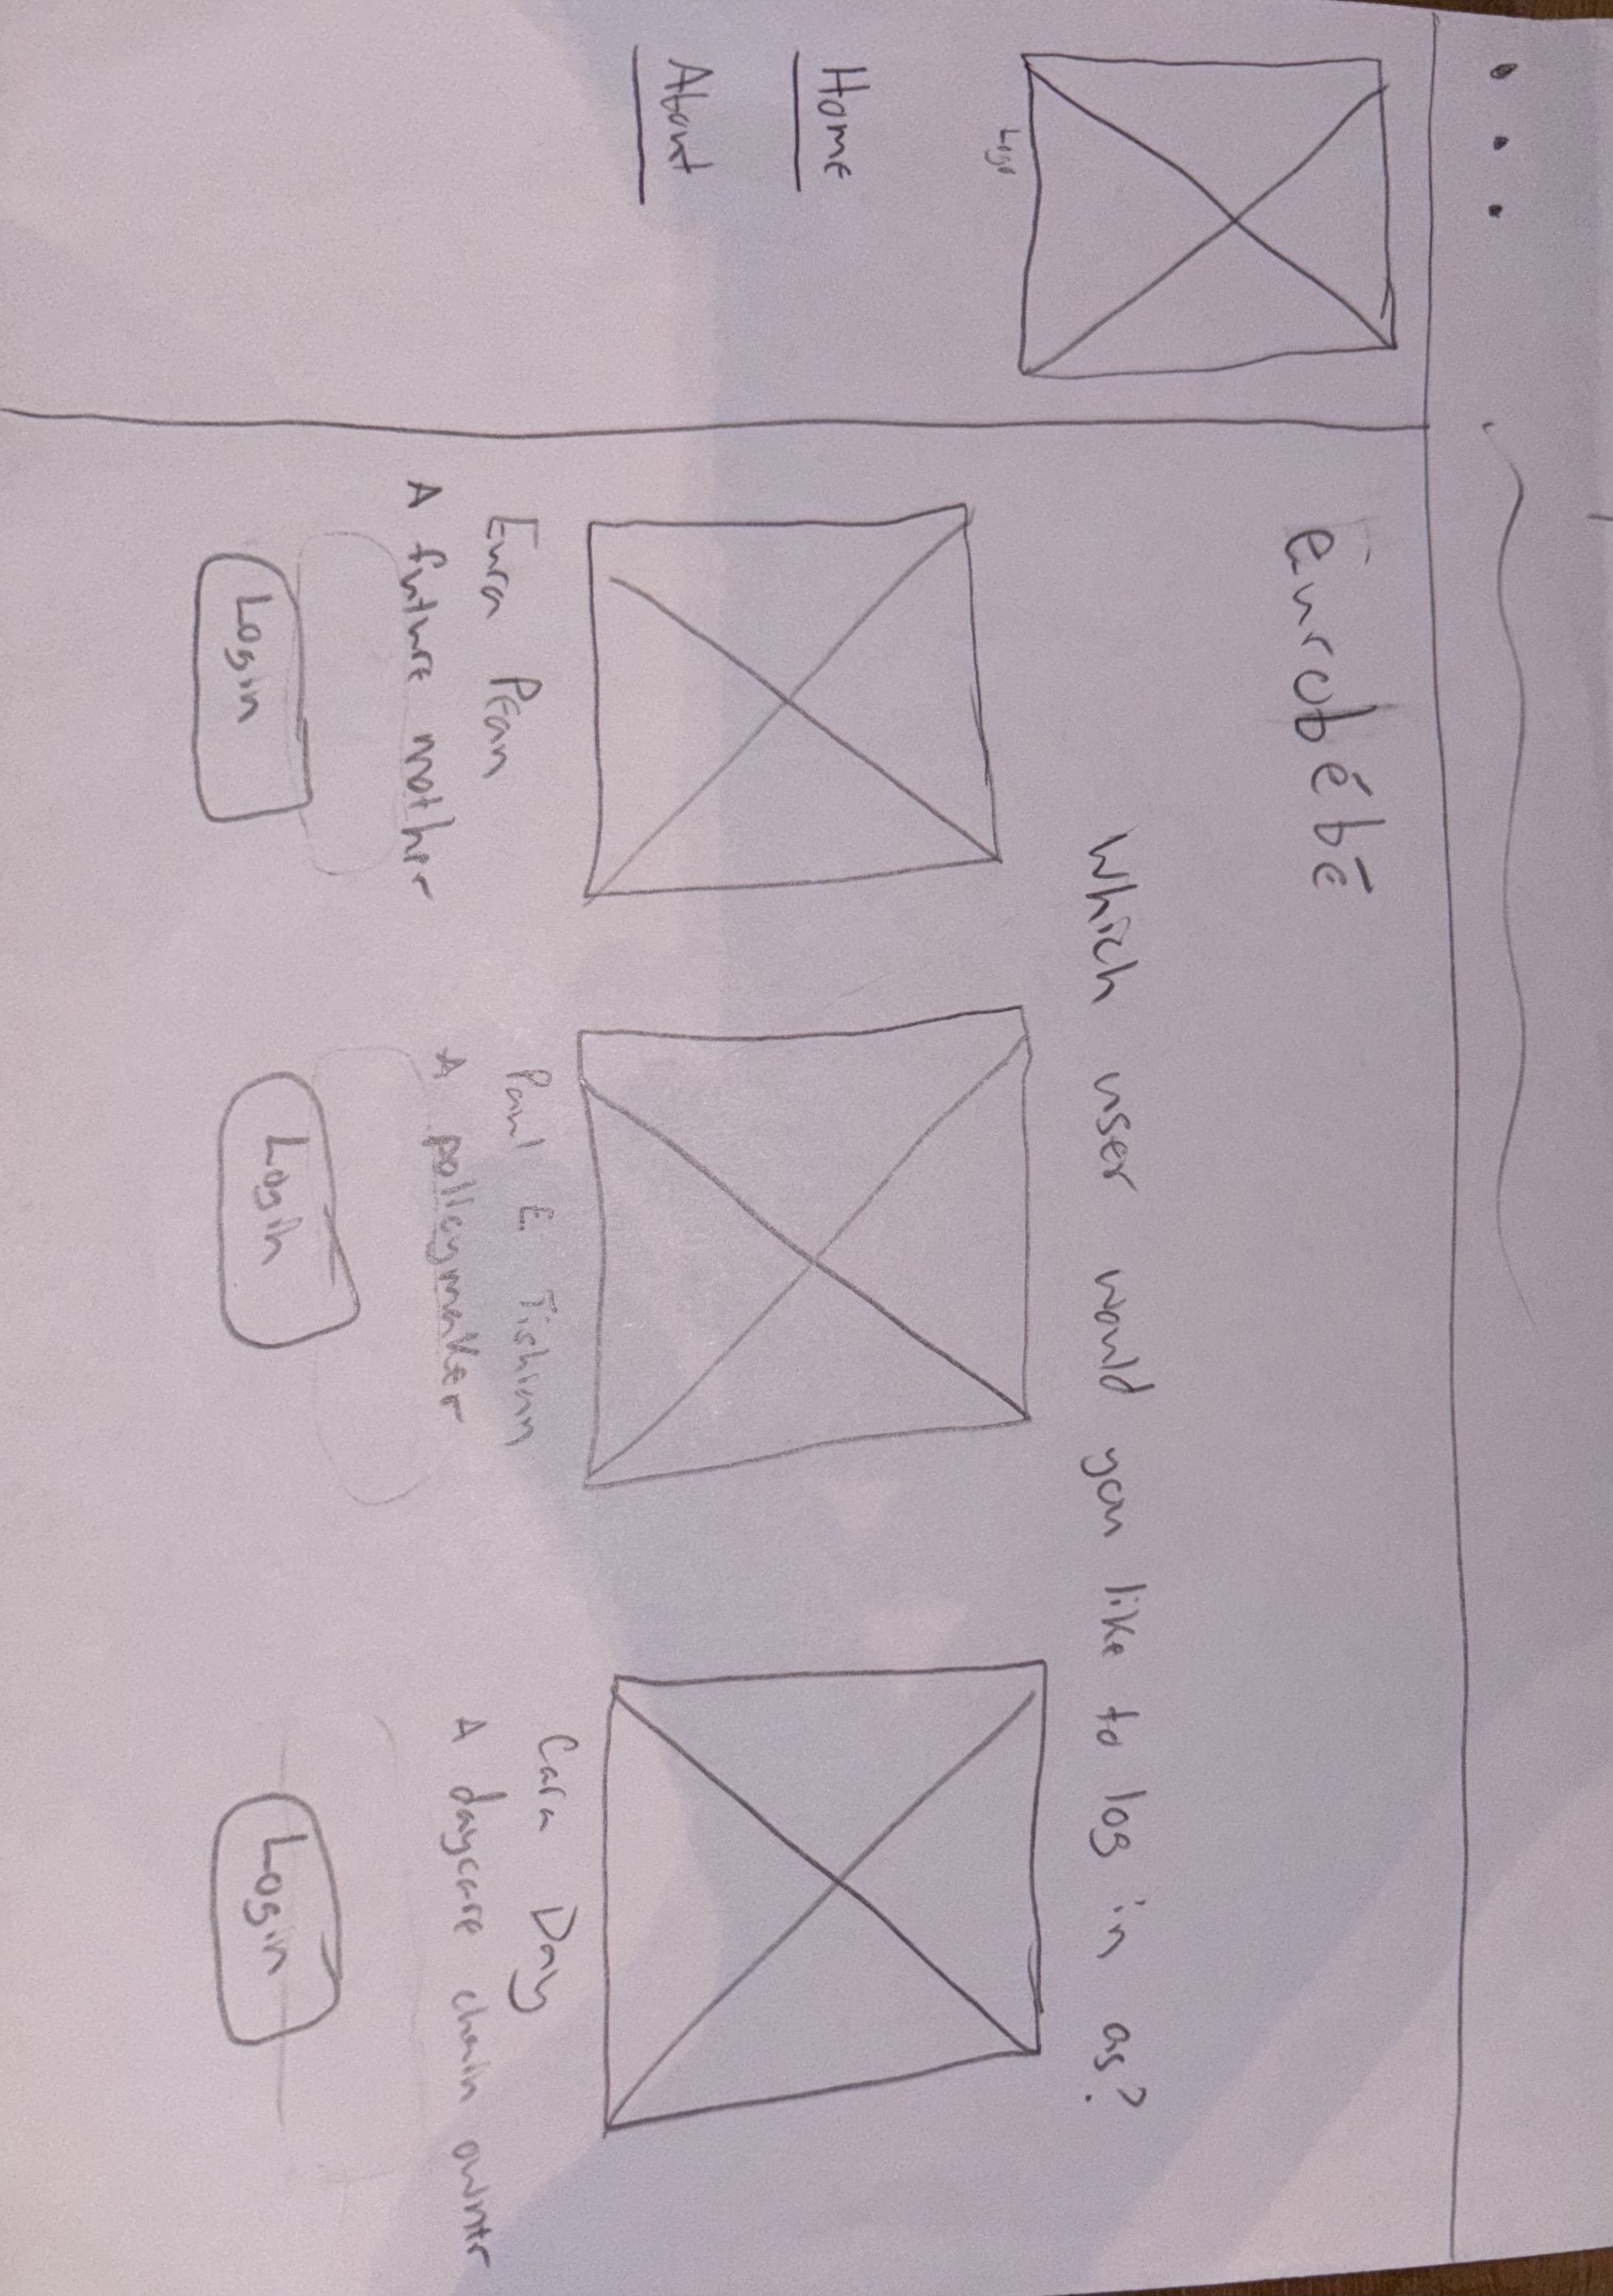 Logo
Home
About
Eurobébé
Which user would you like to log in as?
Eura Pean
A future mother
Login
Paul E. Tishian
A policymaker
Login
Cara Day
A daycare chain owner
Login